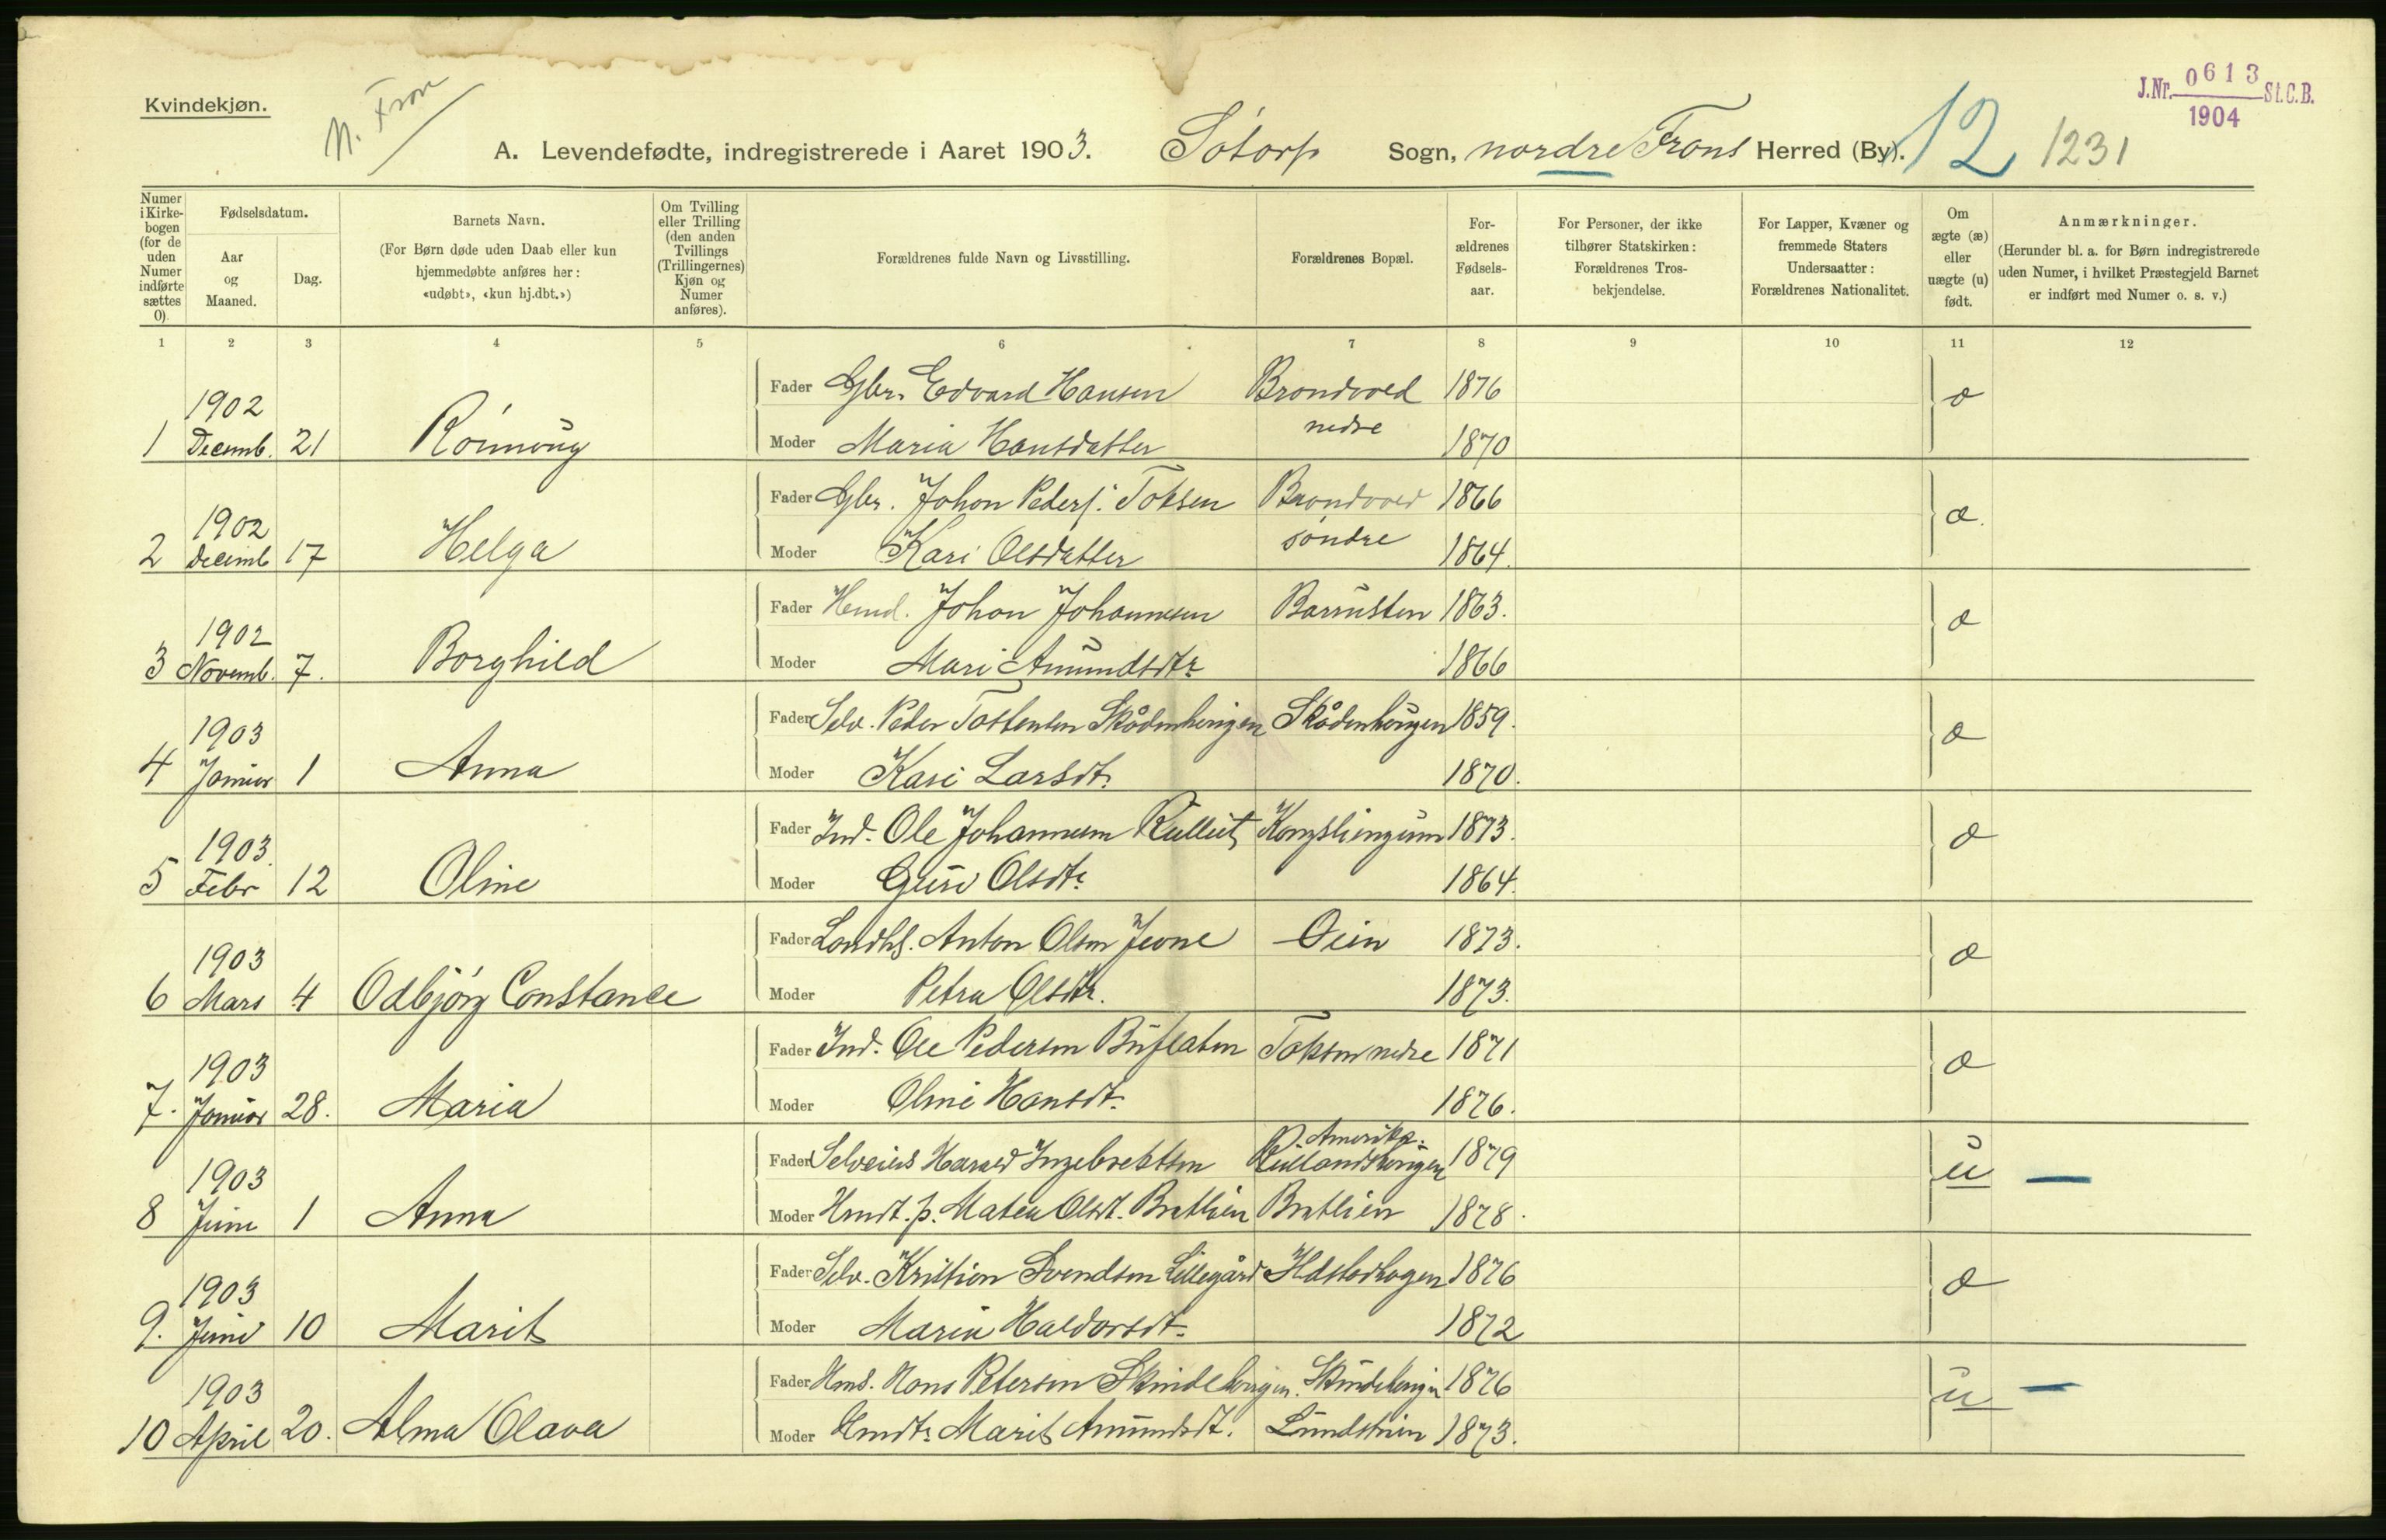 Kvindekjøn.
N. Fron
J.Nr. 0613 St.C.B.
1904
A. Levendefødte, indregistrerede i Aaret 1903. Sótorp Sogn, nordre Frons Herred (By). 12 1231
Numer i Kirkebogen (for de uden Numer indførte sættes 0).
Fødselsdatum.
Aar og Maaned.
Dag.
Barnets Navn.
(For Børn døde uden Daab eller kun hjemmedøbte anføres her: «udøbt», «kun hj.dbt.»)
Om Tvilling eller Trilling (den anden Tvillings (Trillingernes) Kjøn og Numer anføres).
Forældrenes fulde Navn og Livsstilling.
Forældrenes Bopæl.
Forældrenes Fødselsaar.
For Personer, der ikke tilhører Statskirken: Forældrenes Trosbekjendelse.
For Lapper, Kvæner og fremmede Staters Undersaatter: Forældrenes Nationalitet.
Om ægte (æ) eller uægte (u) født.
Anmærkninger.
(Herunder bl. a. for Børn indregistrerede uden Numer, i hvilket Præstegjeld Barnet er indført med Numer o. s. v.)
1 2 3 4 5 6 7 8 9 10 11 12
Fader Gbr. Edvard Hansen Brandvold 1876 æ
1902
1 Decemb. 21 Rónnoug Moder Maria Hansdatter nedre 1870
Fader Gbr. Johan Peders. Toksen Brandvold 1866 æ.
1902
2 Decemb 17 Helga Moder Kari Olsdatter søndre 1864.
Fader Hmd. Johan Johannesen 1863. æ
1902
3 Novemb. 7. Borghild Moder Mari Amundsdtr 1866
Fader Selv. Peder Tostensen Skådenhaugen Skådenhaugen 1859. æ
1903
4 Januar 1 Anna Moder Kari Larsdt. 1870.
Fader Ind. Ole Johannesen 1873. æ
1903.
5 Febr 12 Oline Moder Guri Olsdtr 1864.
Fader Landhl. Anton Olsen Jevne Oien 1873. æ
1903
6 Mars 4 Odbjórg Constance Moder Petra Olsdtr. 1873.
Fader Ind. Ole Pedersen Buflaten Toksen nedre 1871 æ
1903
7. Januar 28. Maria Moder Oline Hansdt. 1876.
Amerika.
Fader Selveiers Harald Ingebrektsen Rullandshaugen 1879 u —
1903
8 Juni 1 Anna Moder Hmdt. p. Matea Olsdt. Bratlien Bratlien 1878.
Fader Selv. Kristian Svendsen Lillegård 1876 æ
1903
9. Juni 10 Marit Moder Maria Haldorsdt. 1872
Fader Hmd. Hans Petersen Skindehaugen. Skindehaugen 1876 u —
1903
10 April 20. Alma Olava Moder Hmdtr Marit Amundsdt. Lundstuen 1873.